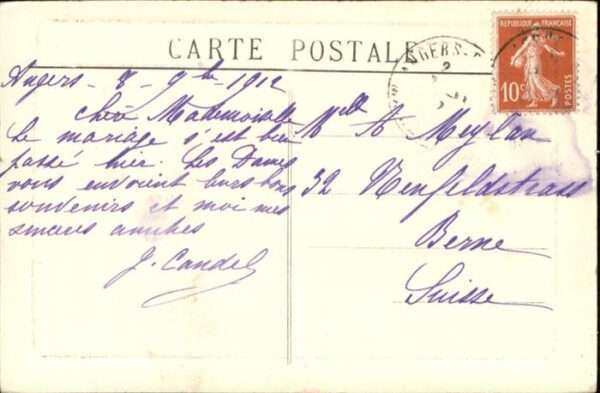 CARTE POSTALE
RÉPUBLIQUE FRANÇAISE
10c
POSTES
ANGERS
Angers - 8 - 9bre 1912
Chère Mademoiselle
Le mariage s'est bien
passé hier. Les Dames
vous envoient leurs bons
souvenirs et moi mes
sincères amitiés
J. Candel
Melle A Meylan
32 Neufeldstrass
Berne
Suisse